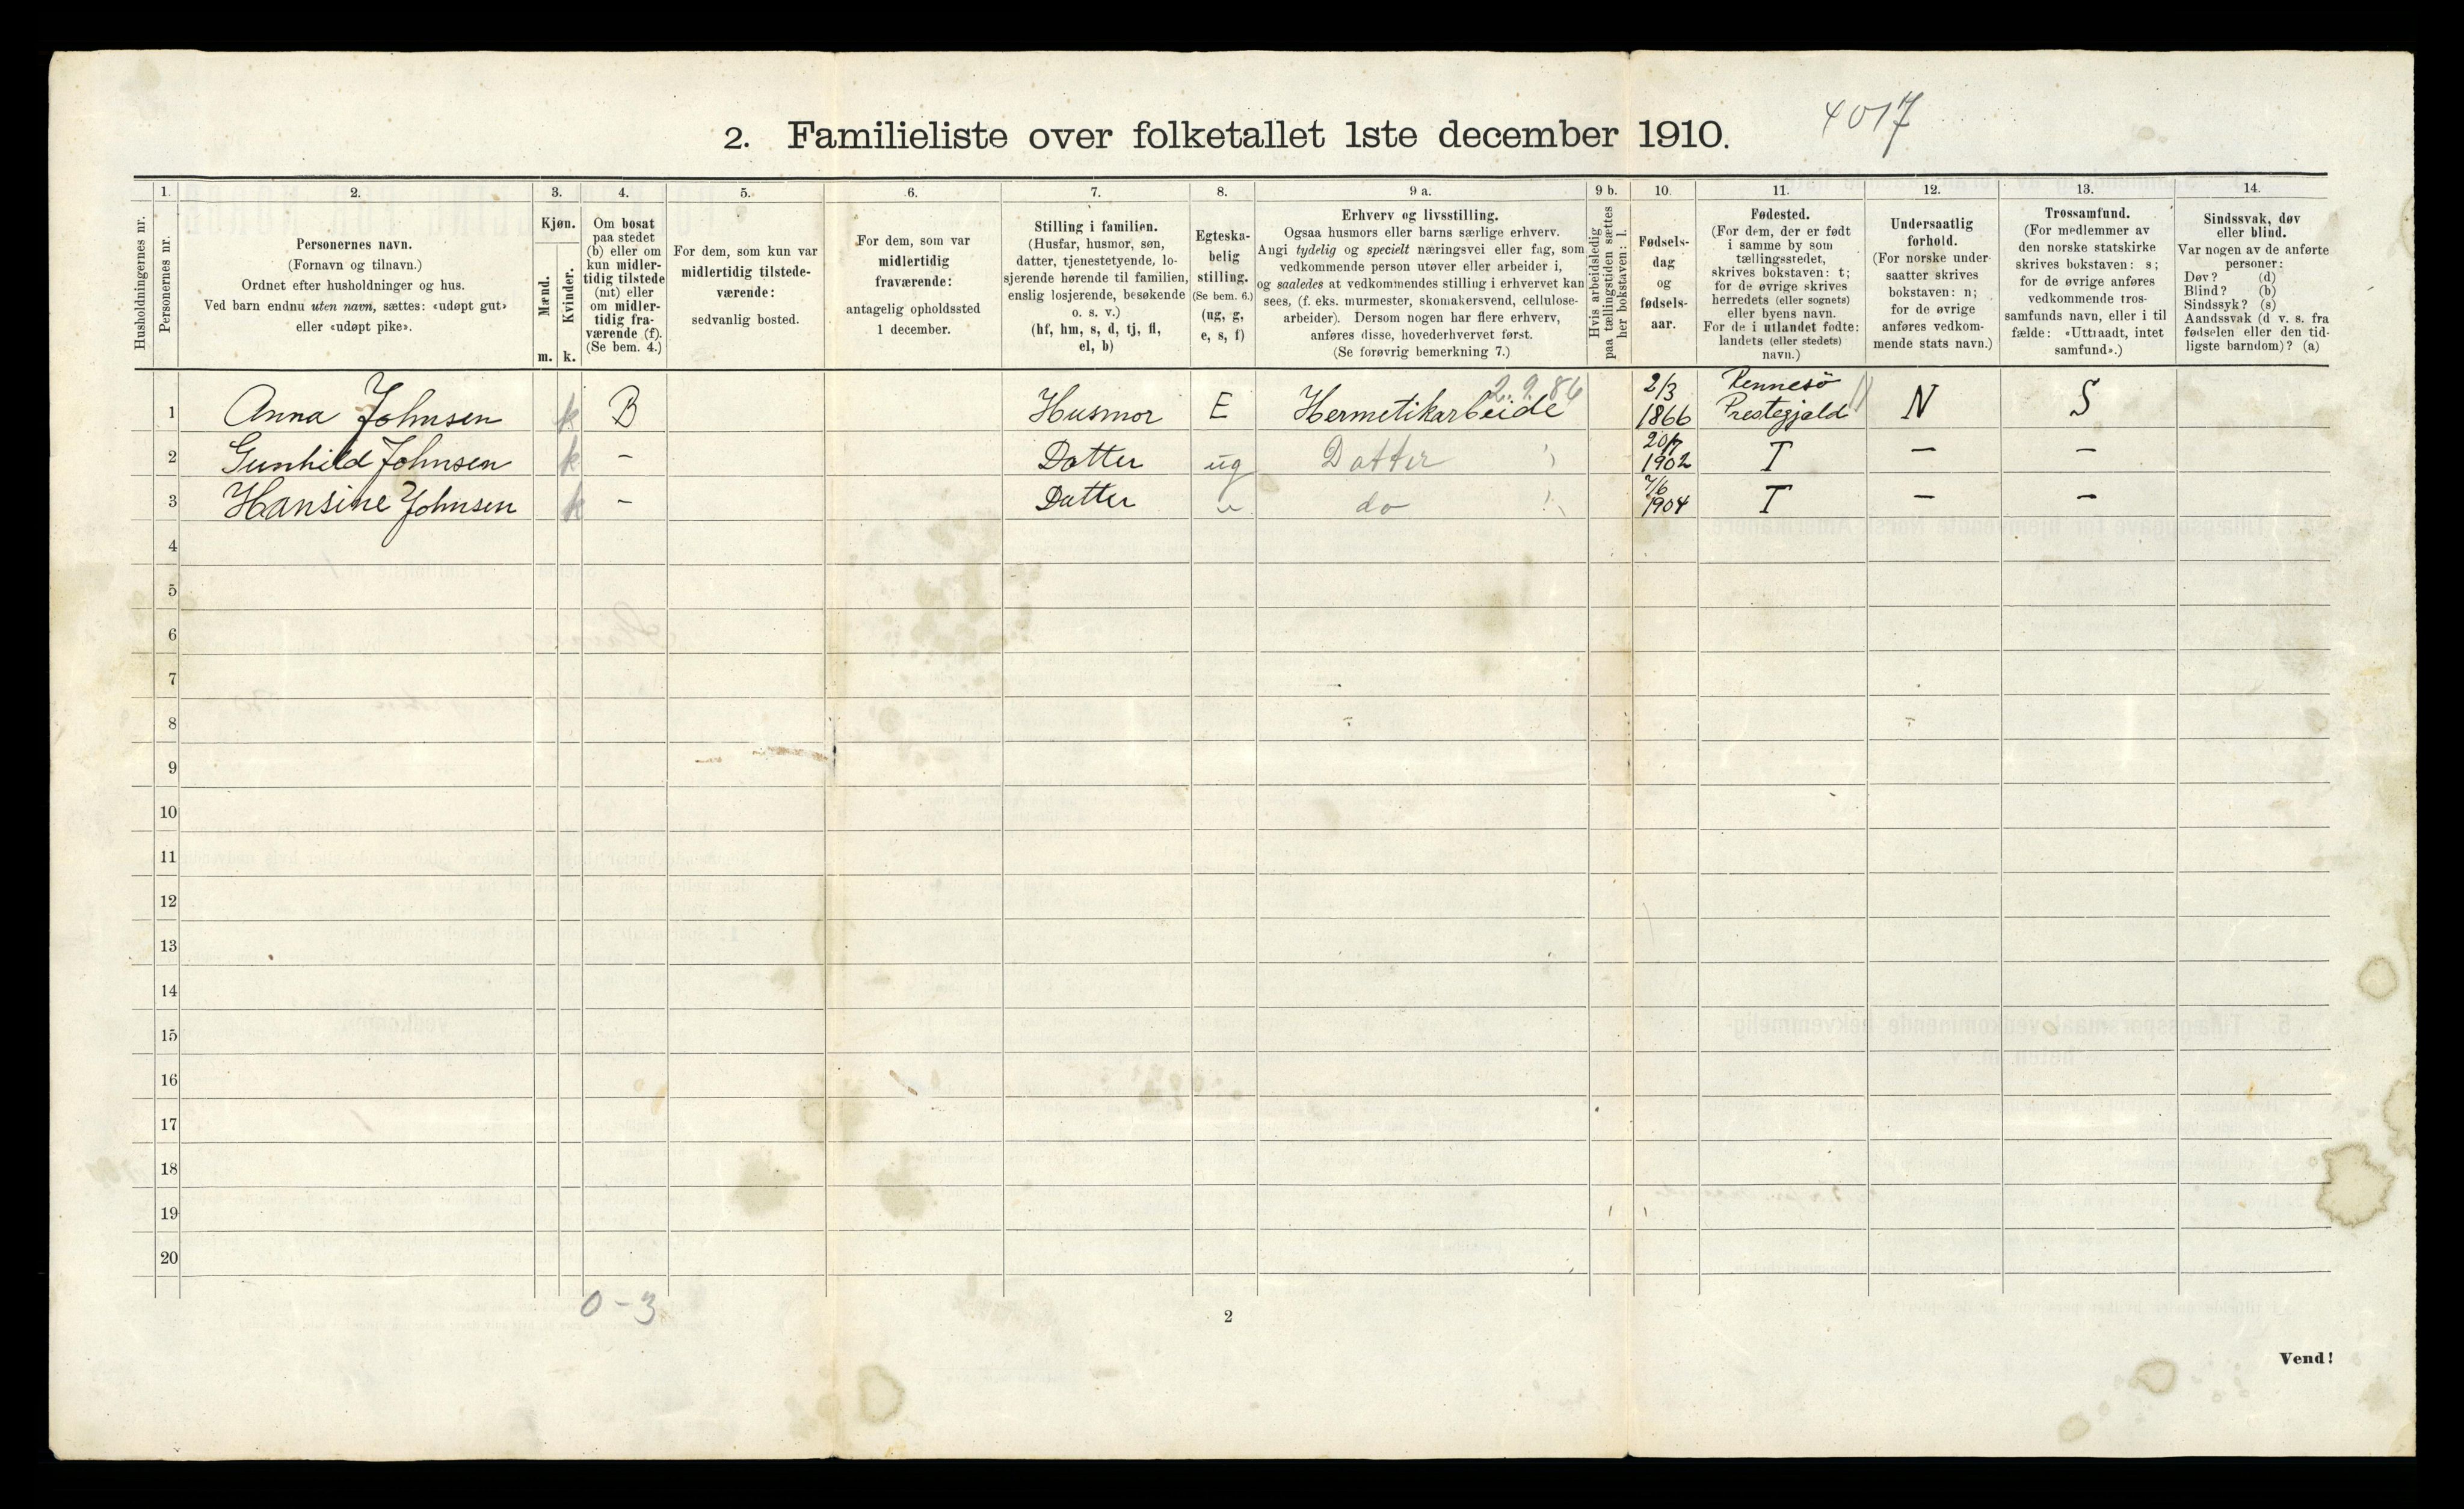 4017
2. Familieliste over folketallet 1ste december 1910.
Husholdningernes nr.
1.
Personernes nr.
2.
Personernes navn.
(Fornavn og tilnavn.)
Ordnet efter husholdninger og hus.
Ved barn endnu uten navn, sættes: «udøpt gut»
eller «udøpt pike».
3.
Kjøn.
Mænd.
Kvinder.
m. k.
4.
Om bosat
paa stedet
(b) eller om
kun midler-
tidig tilstede
(mt) eller
om midler-
tidig fra-
værende (f).
(Se bem. 4.)
5.
For dem, som kun var
midlertidig tilstede-
værende:
sedvanlig bosted.
6.
For dem, som var
midlertidig
fraværende:
antagelig opholdssted
1 december.
7.
Stilling i familien.
(Husfar, husmor, søn,
datter, tjenestetyende, lo-
sjerende hørende til familien,
enslig losjerende, besøkende
o. s. v.)
(hf, hm, s, d, tj, fl,
el, b)
8.
Egteska-
belig
stilling.
(Se bem. 6.)
(ug, g,
e, s, f)
9 a.
Erhverv og livsstilling.
Ogsaa husmors eller barns særlige erhverv.
Angi tydelig og specielt næringsvei eller fag, som
vedkommende person utøver eller arbeider i,
og saaledes at vedkommendes stilling i erhvervet kan
sees, (f. eks. murmester, skomakersvend, cellulose-
arbeider). Dersom nogen har flere erhverv,
anføres disse, hovederhvervet først.
(Se forøvrig bemerkning 7.)
9 b.
Hvis arbeidsledig
paa tællingstiden sættes
her bokstaven: l.
10.
Fødsels-
dag
og
fødsels-
aar.
11.
Fødested.
(For dem, der er født
i samme by som
tællingsstedet,
skrives bokstaven: t;
for de øvrige skrives
herredets (eller sognets)
eller byens navn.
For de i utlandet fødte:
landets (eller stedets)
navn.)
12.
Undersaatlig
forhold.
(For norske under-
saatter skrives
bokstaven: n;
for de øvrige
anføres vedkom-
mende stats navn.)
13.
Trossamfund.
(For medlemmer av
den norske statskirke
skrives bokstaven: s;
for de øvrige anføres
vedkommende tros-
samfunds navn, eller i til
fælde: «Uttraadt, intet
samfund».)
14.
Sindssvak, døv
eller blind.
Var nogen av de anførte
personer:
Døv? (d)
Blind? (b)
Sindssyk? (s)
Aandssvak (d v. s. fra
fødselen eller den tid-
ligste barndom)? (a)
2.9.86 2/3 Rennesö
1 Anna Johnsen k B Husmor E Hermetikarbeide 1866 Prestegjald N S
20/7
2 Gunhild Johnsen k – Datter ug Datter 1902 T – –
7/6
3 Hansine Johnsen k – Datter u do 1904 T – –
4
5
6
7
8
9
10
11
12
13
14
15
16
17
18
19
20
0 – 3
2
Vend!